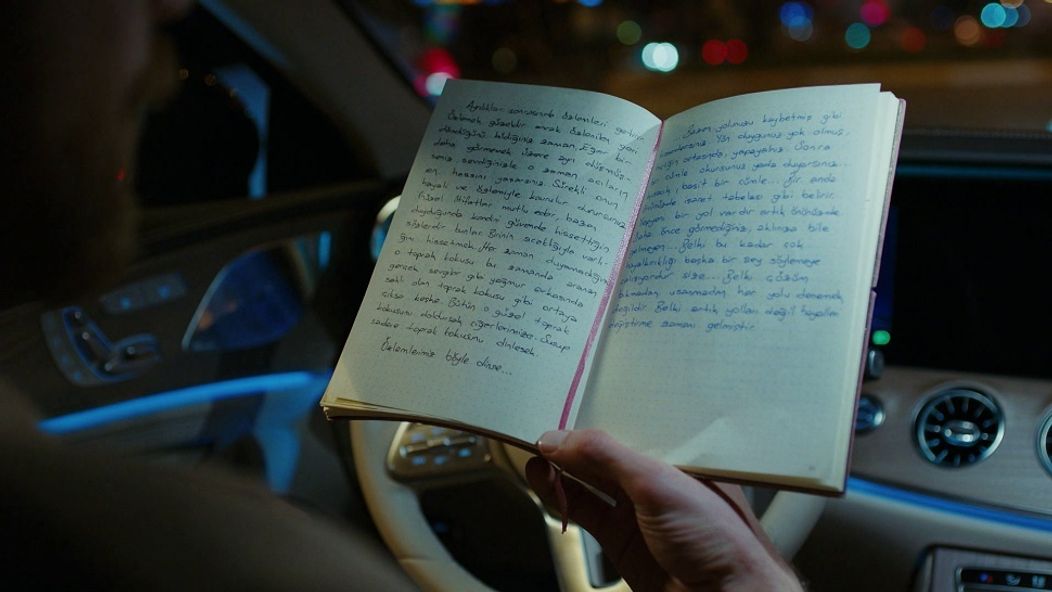 Ayrılıklar sonrasında özlemleri getirir.
Özlemek güzeldir ancak özlenilen geri
döndüğünü bildiğiniz zaman. Eğer bir
daha görmemek üzere ayrı düşmüş-
seniz sevdiğinizle o zaman acıların
en hassını yaşarsınız. Sürekli onun
hayali ve özlemiyle kavrulur durursunuz.
Güzel iltifatlar mutlu eder, bazen
duyduğunda kendini güvende hissettiğin
sözlerdir bunlar. Birinin sıcaklığıyla varlı-
ğını hissetmek. Her zaman duyamadığın
o toprak kokusu bu zamanda aranan
gerçek sevgiler gibi yağmur arkasında
saklı olan toprak kokusu gibi ortaya
çıksa keşke. Bütün o güzel toprak
kokusunu doldursak ciğerlerimize. Susup
sadece toprak kokusunu dinlesek.
Özlemlerimiz böyle dinse...
Bazen yolunuzu kaybetmiş gibi
Yön duygunuz yok olmuş,
ortasında, yapayalnız. Sonra
cümle okursunuz yada duyarsınız...
basit bir cümle... Bir anda
önünüzde işaret tabelası gibi belirir.
bir yol vardır artık önünüzde
daha önce görmediğiniz, aklınıza bile
gelmeyen... Belki bu kadar çok
hayalkırıklığı başka bir şey söylemeye
çalışıyordur size... Belki çözüm
bıkmadan, usanmadan her yolu denemek
değildir. Belki artık yolları değil hayalleri
değiştirme zamanı gelmiştir.